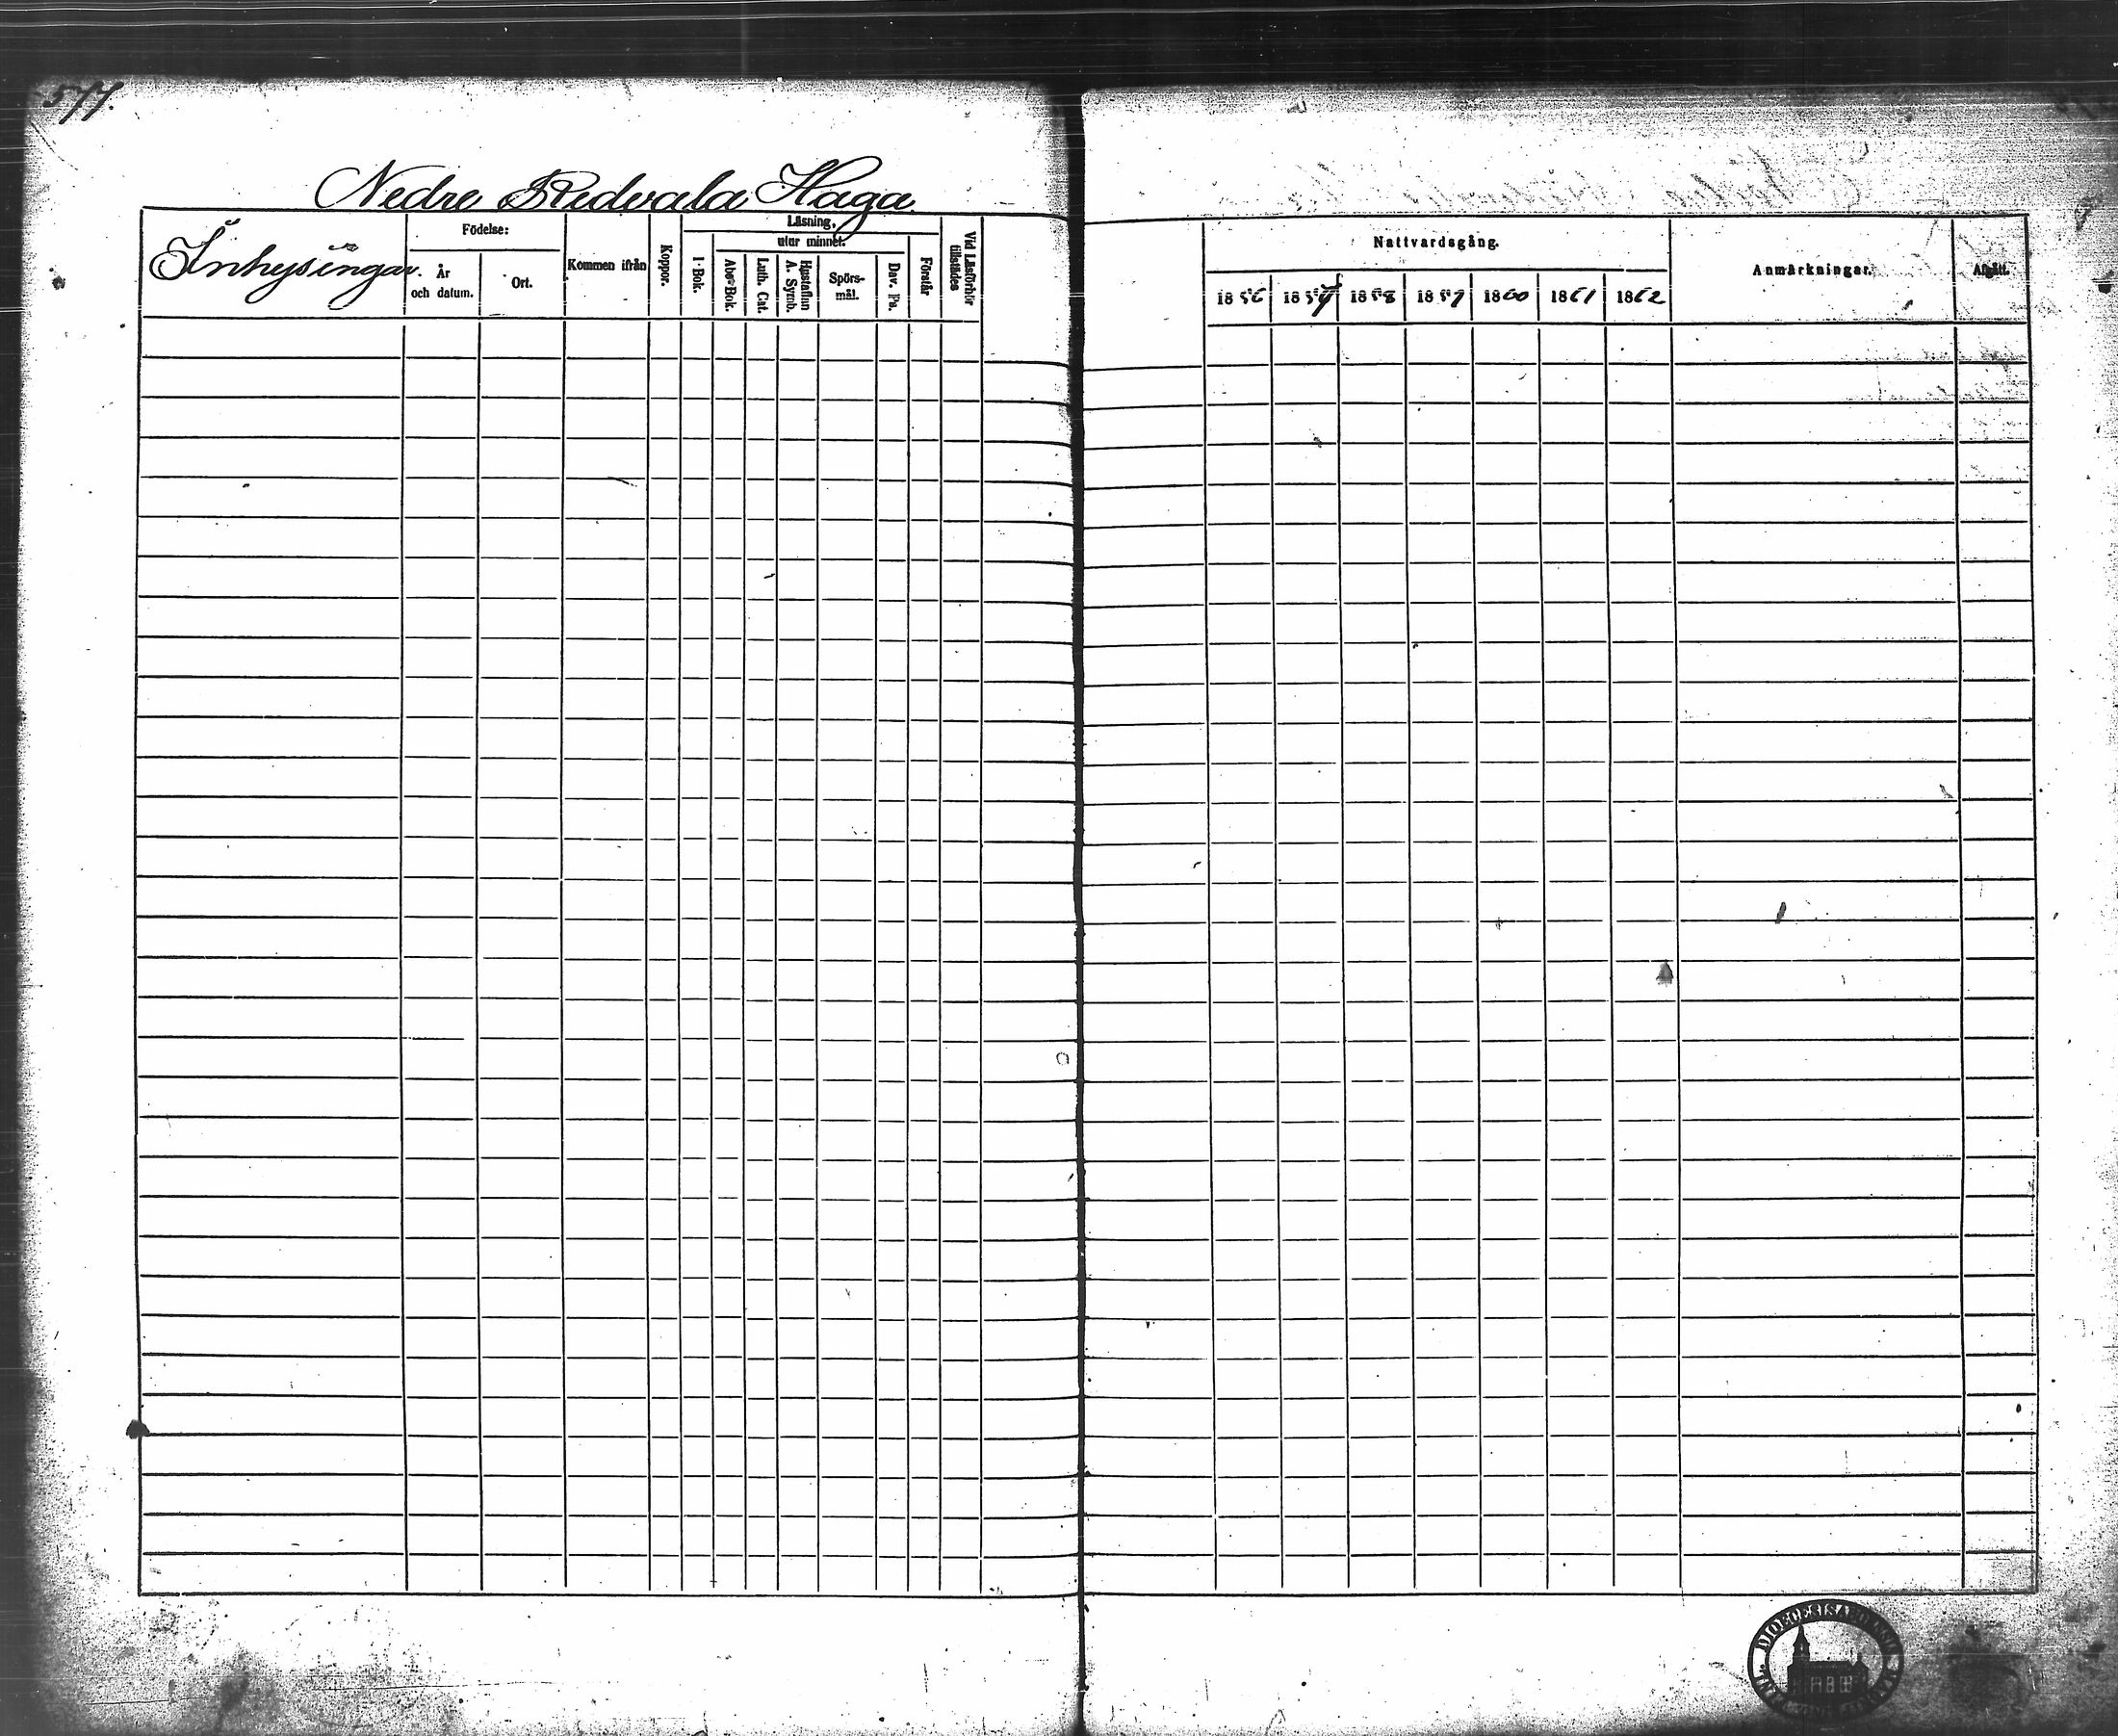 577.
Nedre Redvala Haga
Inhysingar.
Födelse:
År
och datum.
Ort.
Kommen ifrån
Koppor.
Läsning,
I Bok.
utur minnet.
Abc Bok.
Luth. Cat.
Hustaflan
A. Symb.
Spörs-
mål.
Dav. Ps.
Förstår
Vid Läsförhör
tillstädes
Nattvardsgång.
1856 1857 1858 1859 1860 1861 1862
Anmärkningar.
Afgått.